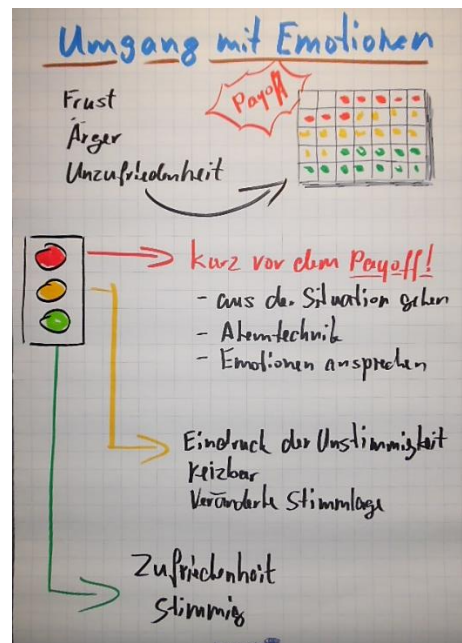 Umgang mit Emotionen
Frust
Payoff
Ärger
Unzufriedenheit
kurz vor dem Payoff!
- aus der Situation gehen
- Atemtechnik
- Emotionen ansprechen
Eindruck der Unstimmigkeit
reizbar
Veränderte Stimmlage
Zufriedenheit
stimmig